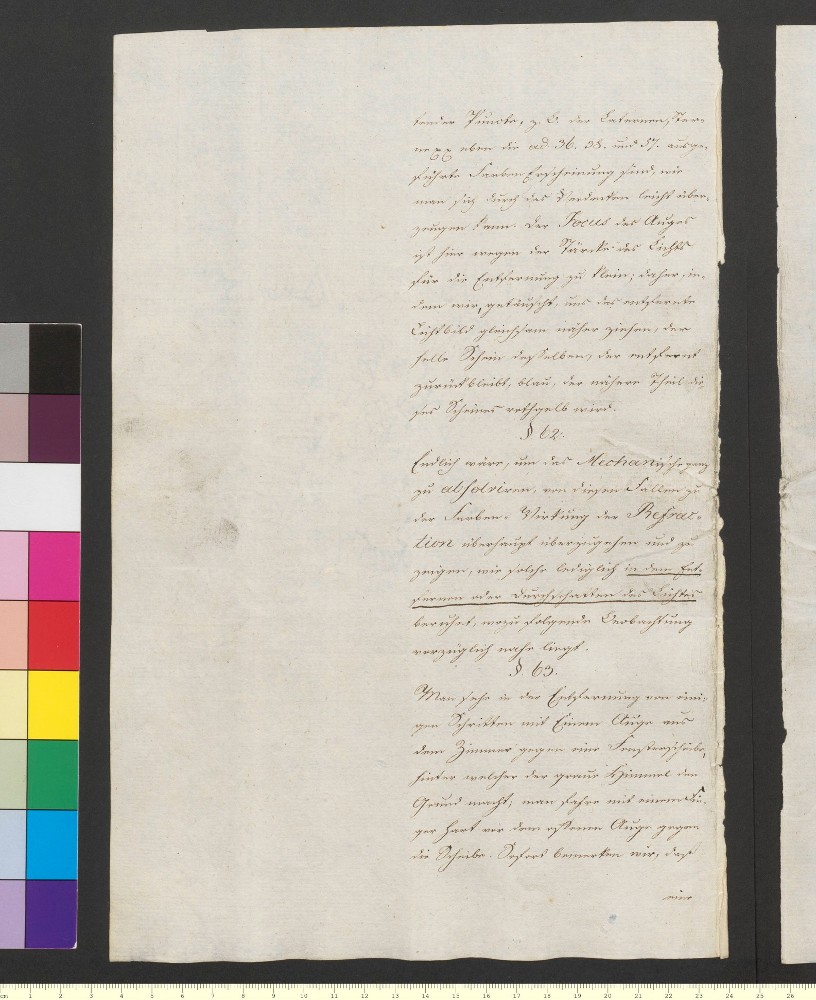 tender Puncte, z. B. der Laternen, Ster-
ne pp eben die ad 36. 38. und 57. ausge-
führte Farben Erscheinung sind, wie
man sich durch das Verdecken leicht über-
zeugen kann. Der Focus des Auges
ist hier wegen der Stärcke des Lichts
für die Entfernung zu klein; daher, in-
dem wir, getäuscht, uns das entfernte
Lichtbild gleichsam näher ziehen, der
helle Schein desselben, der entfernt
zurückbleibt, blau, der nähere Theil die-
ses Scheines rothgelb wird.
§ 62.
Endlich wäre, um das Mechanische ganz
zu absolviren, von diesen Fällen zu
der Farben-Wirkung der Refrac-
tion überhaupt überzugehen und zu
zeigen, wie solche lediglich in dem Ent-
fernen oder Durchschatten des Lichtes
beruhet, wozu folgende Beobachtung
vorzüglich nahe liegt.
§ 63.
Man sehe in der Entfernung von eini-
gen Schritten mit Einem Auge aus
dem Zimmer gegen eine Fensterscheibe,
hinter welcher der graue Himmel den
Grund macht; man fahre mit einem Fin-
ger hart vor dem offenen Auge gegen
die Scheibe. Sofort bemerken wir, daß
eine